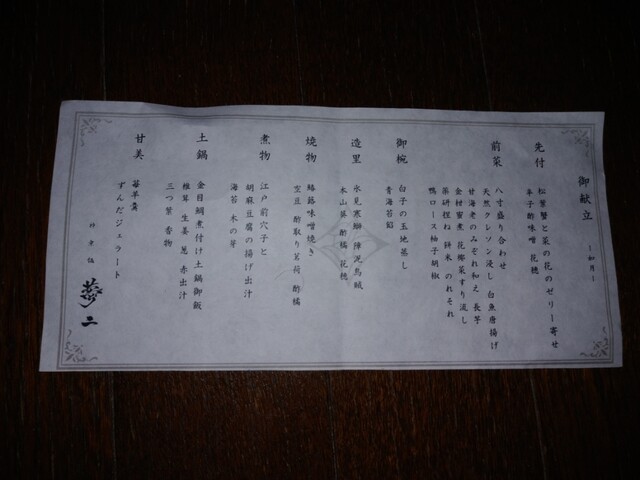 御献立
―如月―
先付
松葉蟹と菜の花のゼリー寄せ
辛子酢味噌 花穂
前菜
八寸盛り合わせ
天然クレソン浸し 白魚唐揚げ
甘海老のみぞれ和え 長芋
金柑蜜煮 花椰菜すり流し
薬研捏ね 餅米 のれそれ
鴨ロース柚子胡椒
御椀
白子の玉地蒸し
青海苔餡
造里
氷見寒鰤 障泥烏賊
本山葵 酢橘 花穂
焼物
鰆蕗味噌焼き
空豆 酢取り茗荷 酢橘
煮物
江戸前穴子と
胡麻豆腐の揚げ出汁
海苔 木の芽
土鍋
金目鯛煮付け土鍋御飯
椎茸 生姜 葱 赤出汁
三つ葉 香物
甘美
苺羊羹
ずんだジェラート